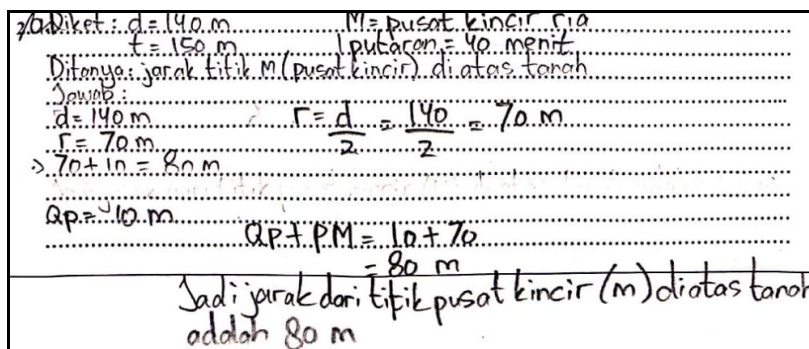 2) a. Diket : d = 140 m M = pusat kincir ria
t = 150 m 1 putaran = 40 menit
Ditanya : jarak titik M (pusat kincir) di atas tanah
Jawab :
d = 140 m r = d/2 = 140/2 = 70 m
r = 70 m
:> 70 + 10 = 80 m
QP = 10 m
QP + PM = 10 + 70
= 80 m
Jadi jarak dari titik pusat kincir (m) diatas tanah
adalah 80 m